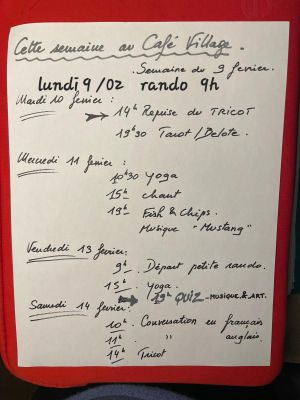 Cette semaine au Café Village.
Semaine du 9 février.
lundi 9/02 rando 9h
Mardi 10 février :
14h Reprise du TRICOT
19h30 Tarot/Belote.
Mercredi 11 février :
10h30 Yoga
15h chant
19h Fish & Chips.
Musique "Mustang"
Vendredi 13 février:
9h. Départ petite rando.
15h. Yoga.
19h QUIZ - MUSIQUE & ART.
Samedi 14 février:
10h. Conversation en français
11h. " anglais.
14h Tricot